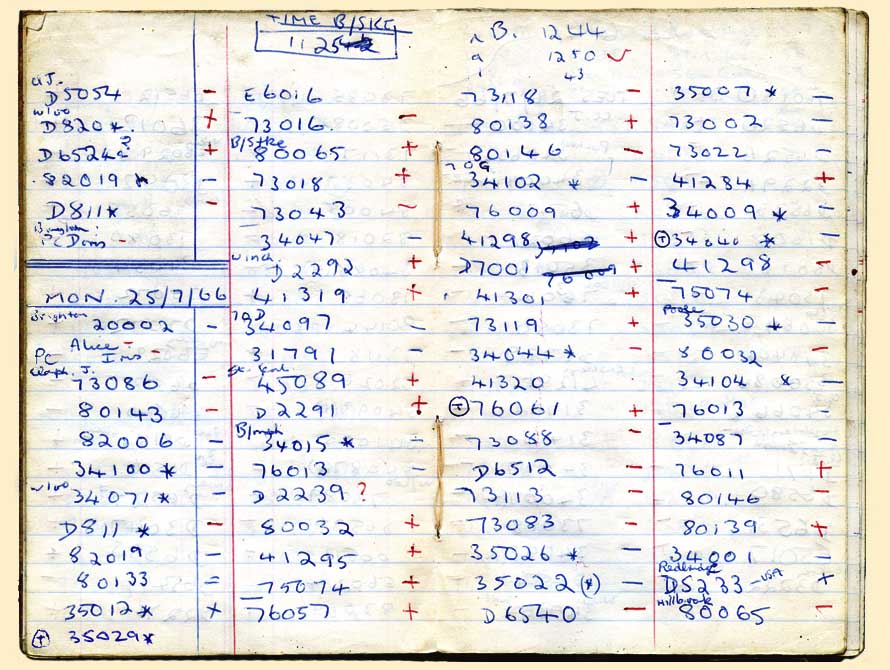 TIME B/SKE
11 25
CJ.
D5054 -
w/oo
D820*. +
D6524 +
82019 * -
D811* -
PC Doris -
MON. 25/7/66
Brighton
20002 -
Alice -
PC Iris -
Claph. J.
73086 -
80143 -
82006 -
34100 * -
w/oo
34071 * -
D811 * -
82019 -
80133 =
35012 * +
(+) 35029*
E6016
73016. -
B/Stke
80065 +
73018 +
73043 ~
34047 -
Winch.
D2292 +
41319 +
70D
34097 -
31791 -
45089 +
D2291 +
B/mth
34015 * -
76013 -
D2239 ?
80032 +
41295 +
75074 +
76057 +
B. 1244
a 1250 ✓
43
73118 -
80138 +
80146 -
34102 * -
76009 +
41298 +
D7001 +
41301 +
73119 +
34044 * -
41320 .
(+) 76061 +
73088 -
D6512 -
73113 -
73083 -
35026 * -
35022 (*) -
D6540 -
35007 * -
73002 -
73022 -
41284 +
34009 * -
(+) 34040 * -
41298 -
75074 -
Poole
35030 * -
80032 -
34104 * -
76013 -
34087 -
76011 +
80146 -
80139 +
34001 -
Redbridge
D5233 - USA +
Millbrook
80065 -